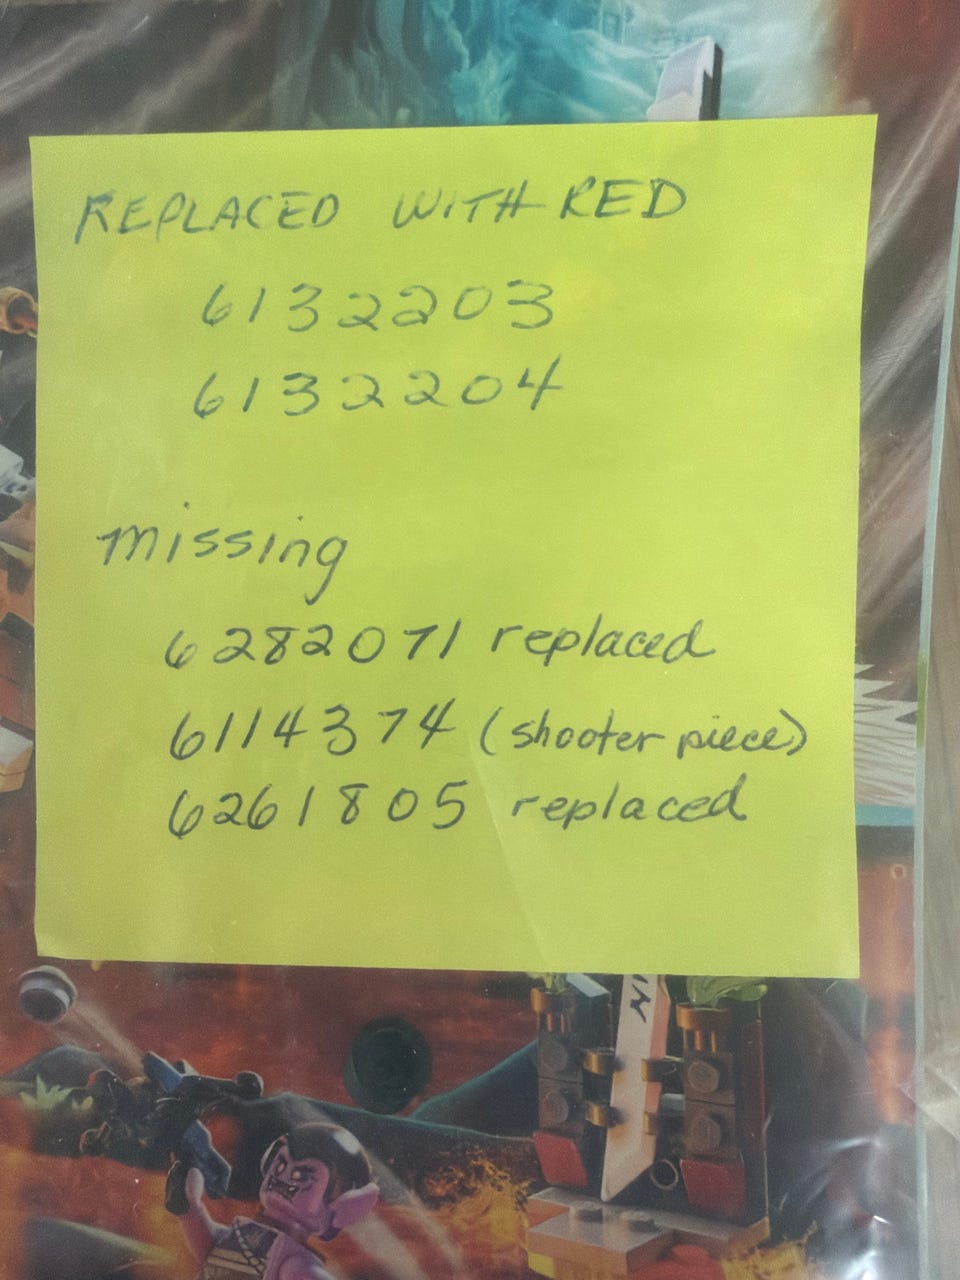 REPLACED WITH RED
6132203
6132204
missing
6282071 replaced
6114374 (shooter piece)
6261805 replaced